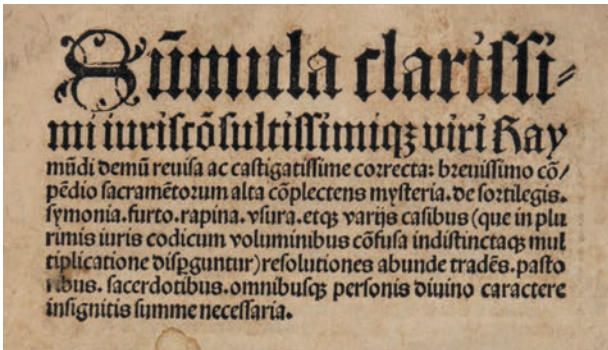 Sūmula clarissi⸗
mi iuriscōsultissimiqꝫ viri Ray
mūdi demū reuisa ac castigatissime correcta: breuissimo cō/
pēdio sacramētorum alta cōplectens mysteria. de sortilegis.
symonia. furto. rapina. vsura. etqꝫ varijs casibus (que in plu
rimis iuris codicum voluminibus cōfusa indistinctaqꝫ mul
tiplicatione disꝑguntur) resolutiones abunde tradēs. pasto
ribus. sacerdotibus. omnibusqꝫ personis diuino caractere
insignitis summe necessaria.